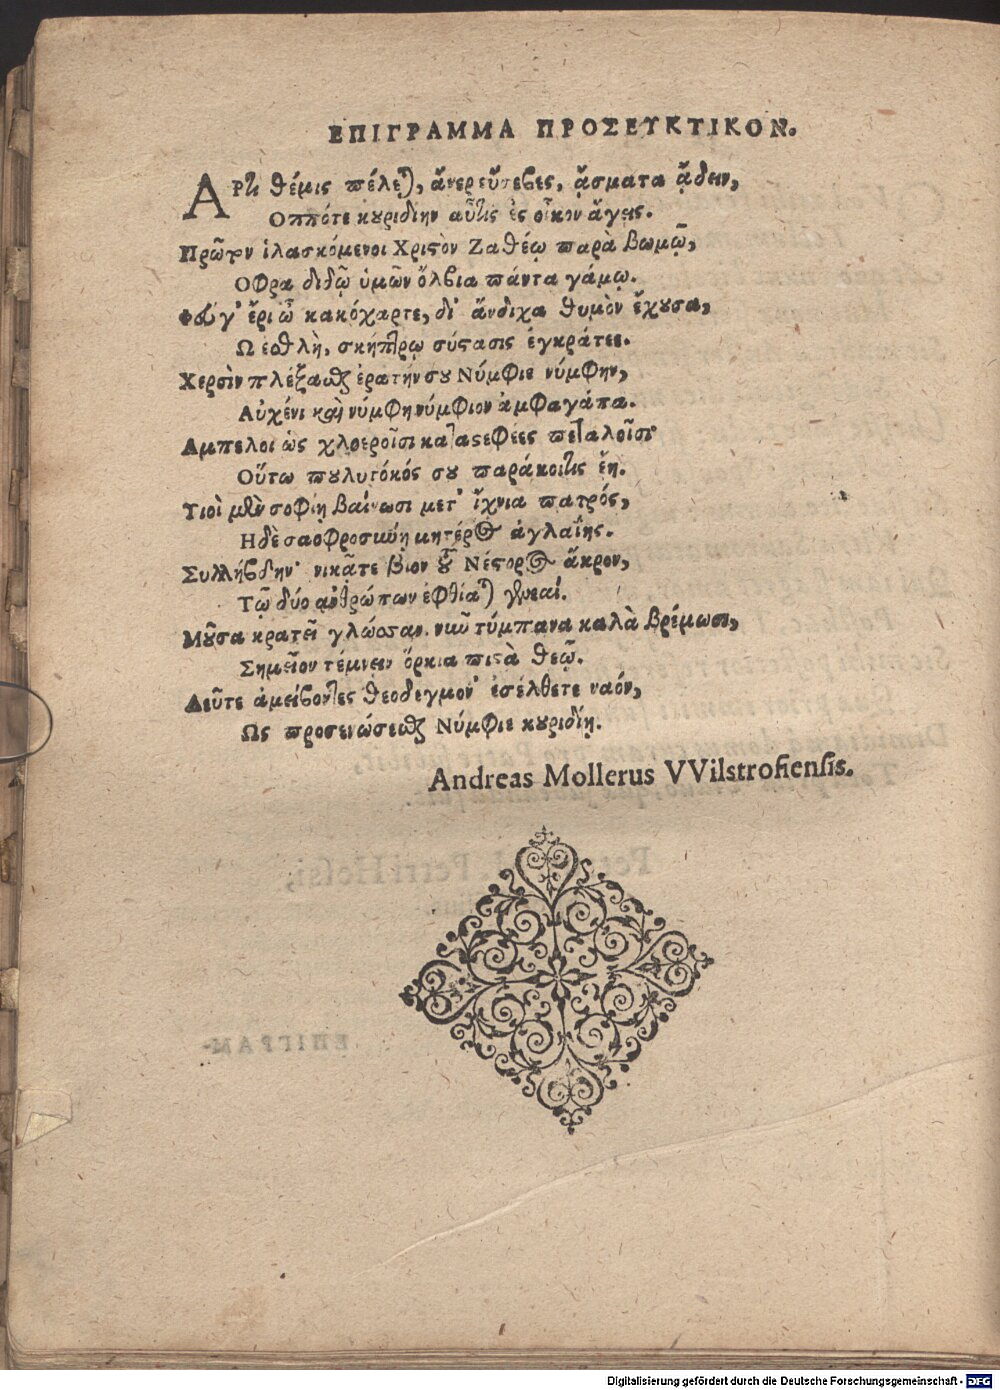 ΕΠΙΓΡΑΜΜΑ ΠΡΟΣΕΥΚΤΙΚΟΝ.
ΑΡτι θέμις πέλεται, ἄνερ εὔσεβες, ᾄσματα ᾄδειν,
Οππότε κυριδίην αὖτις ἐς οἶκον ἄγεις.
Πρῶτον ἱλασκόμενοι Χριστὸν Ζαθέῳ παρὰ βωμῷ,
Οφρα διδῷ ὑμῶν ὄλβια πάντα γάμῳ.
γ' ἔρι ὦ κακόχαρτε, δι' ἄνδιχα θυμὸν ἔχουσα,
Ω ἐσθλὴ, σκήπτρῳ σύστασις ἐγκράτεε.
Χερσὶν πλέξασθαι ἐρατήν σου Νύμφιε νύμφην,
Αὐχένι καὶ νύμφη νύμφιον ἀμφαγάπα.
Αμπελοι ὡς χλοεροῖσι καταστεφέες πετάλοισι
Οὕτω πουλυτόκός σου παράκοιτις ἔῃ.
Υιοὶ μὲν σοφίῃ βαίνωσι μετ' ἴχνια πατρός,
Η δὲ σαοφροσύνη μητέρος ἀγλαΐης.
Συλλήβδην νικᾶτε βίον τοῦ Νέστορος ἄκρον,
Τῷ δύο ἀνθρώπων ἐφθίαται γενεαί.
Μοῦσα κρατεῖ γλώσσαν. νῦν τύμπανα καλὰ βρέμωσι,
Σημεῖον τέμνειν ὅρκια πιστὰ θεῷ.
Δεῦτε ἀμείβοντες θεοδεγμον' ἐσέλθετε ναόν,
Ως προσενώσεαι Νύμφιε κυριδίῃ.
Andreas Mollerus VVilstrofiensis.
Digitalisierung gefördert durch die Deutsche Forschungsgemeinschaft - DFG